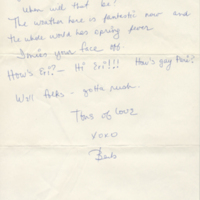 When will that be?
The weather here is fantastic now and
the whole world has spring fever
I miss your face
How's Eri? - Hi Eri!!! How's guy
Well folks - gotta rush.
Tons of Love
XOXO